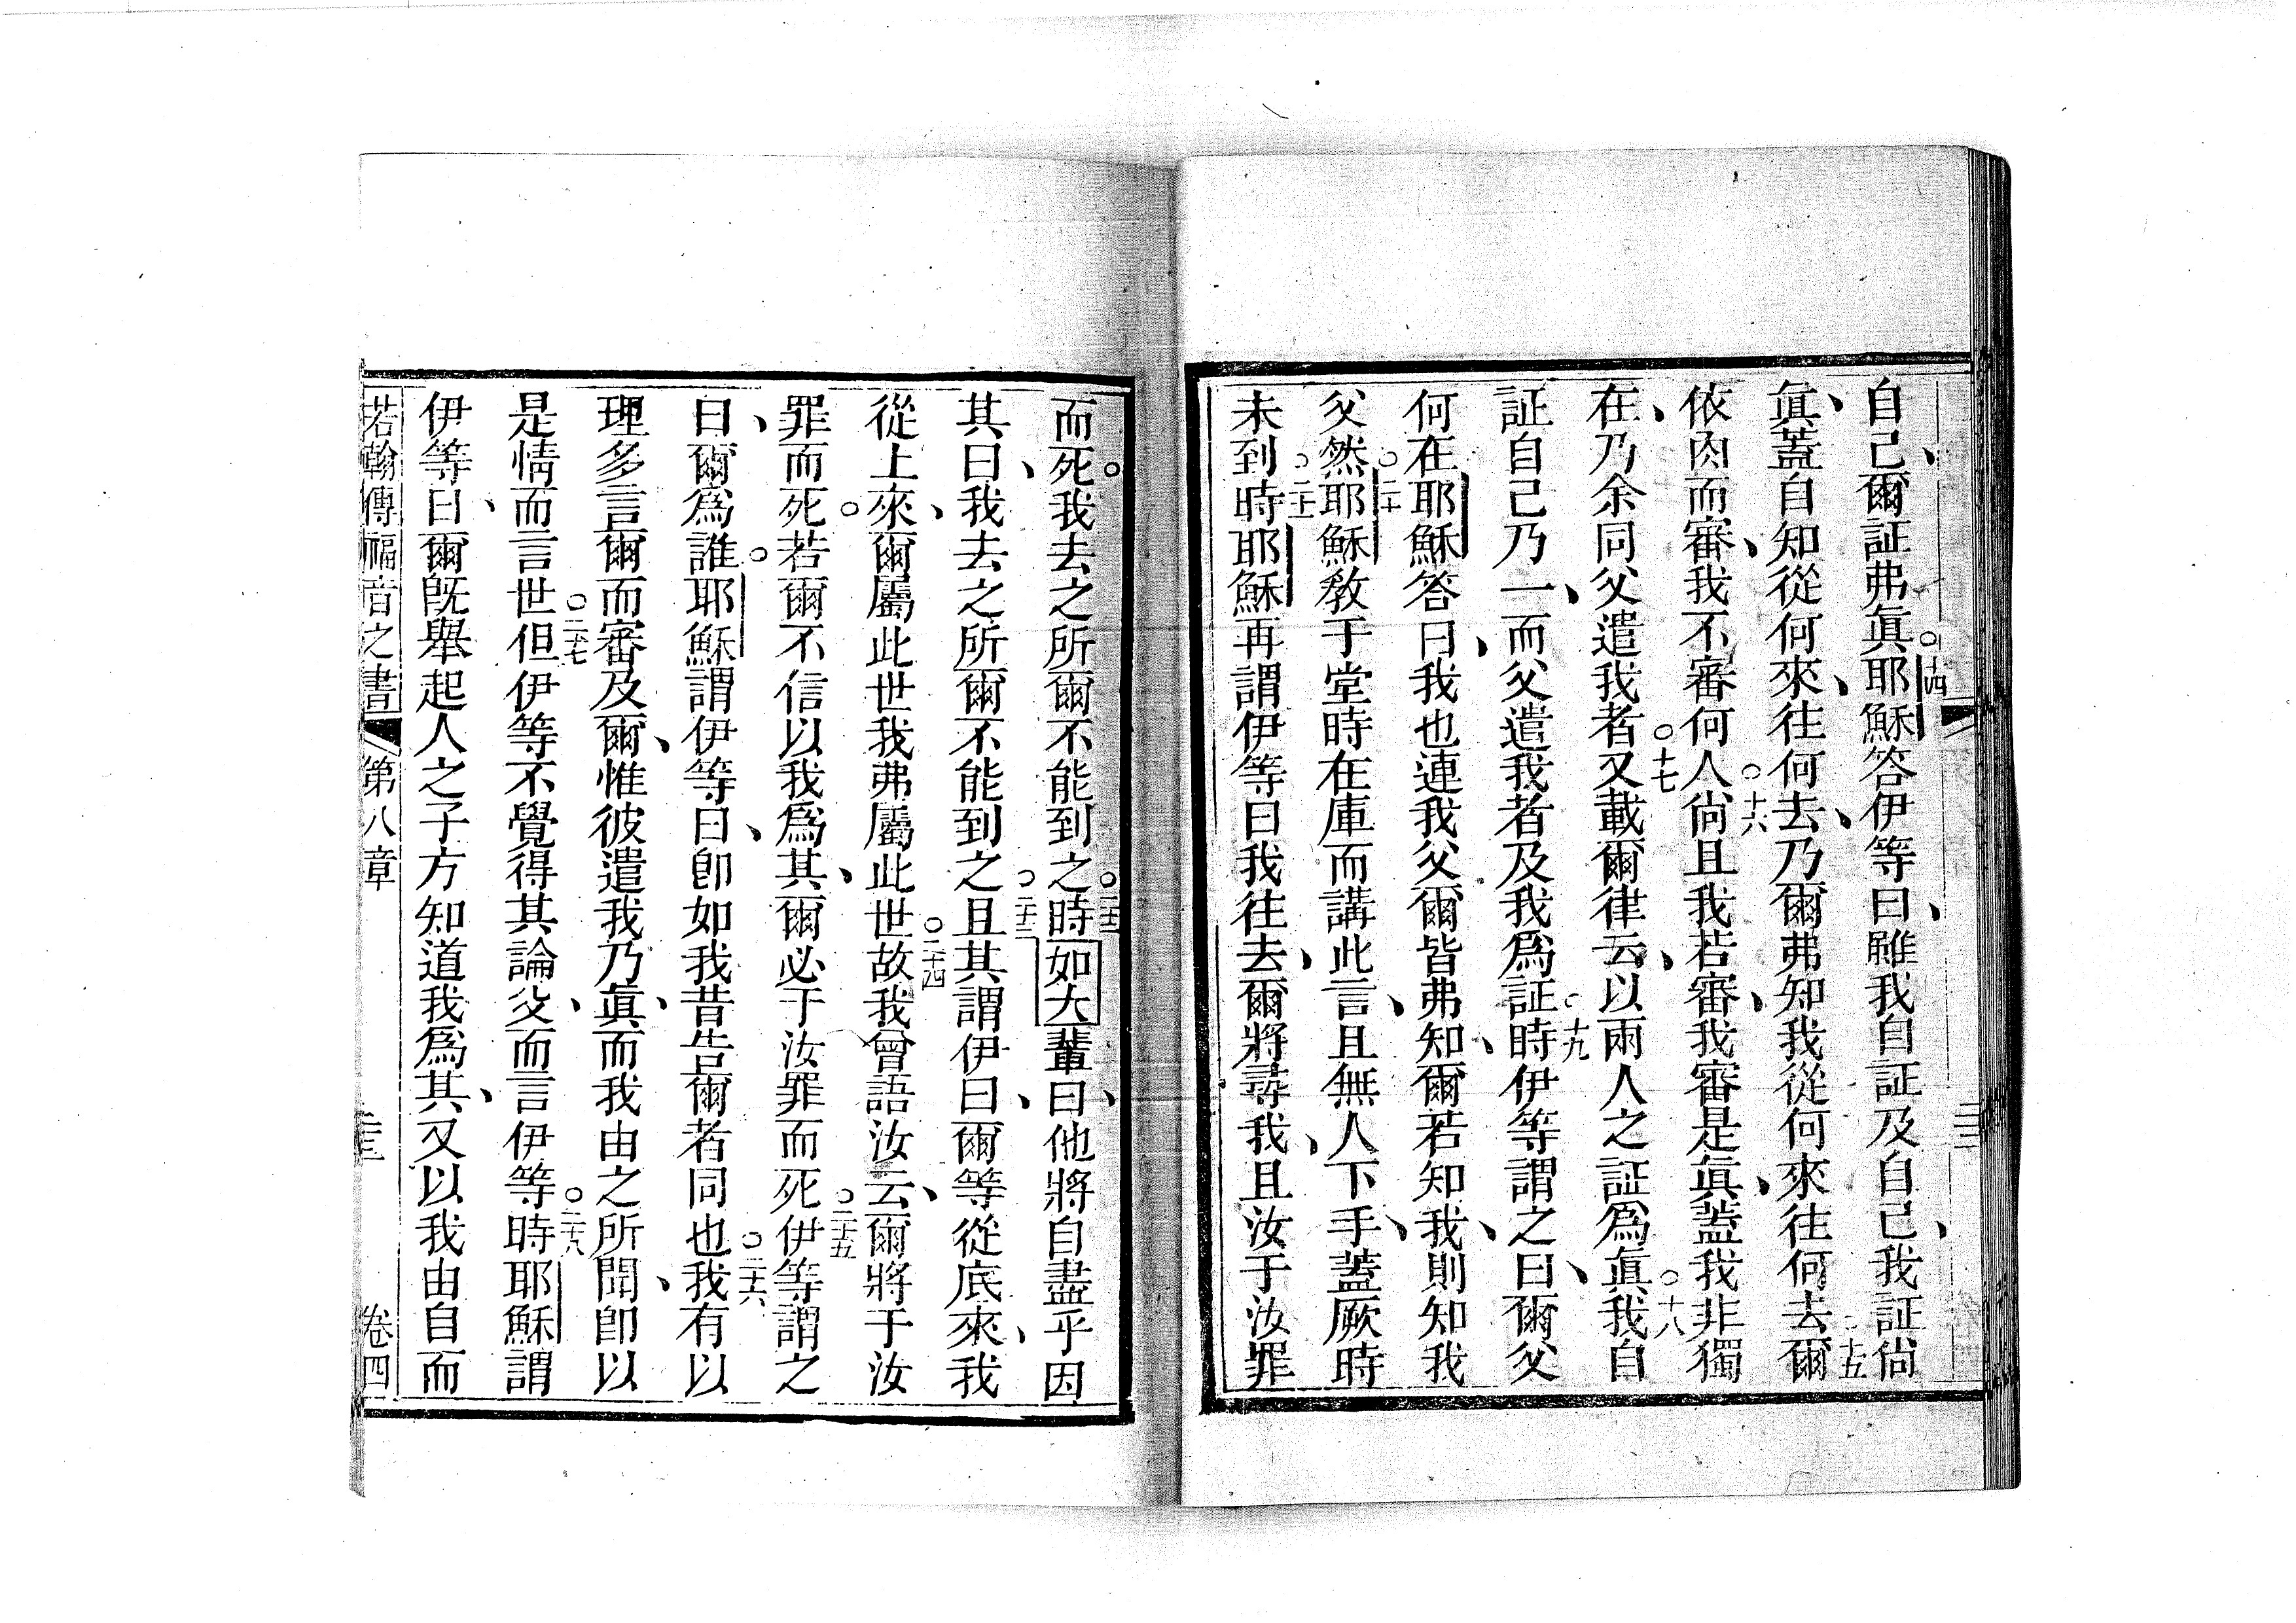 自己、爾証弗眞○十四耶穌答伊等曰、雖我自証及自己、我証尙
眞、蓋自知從何來、往何去、乃爾弗知我從何來往何去○十五爾
依肉而審、我不審何人○十六尙且我若審、我審是眞、蓋我非獨
在、乃余同父遣我者○十七又載爾律云、以兩人之証爲眞○十八我自
証自己乃一、而父遣我者及我爲証○十九時伊等謂之曰、爾父
何在○二十耶穌答曰、我也連我父爾皆弗知、爾若知我、則知我
父○二十然耶穌教于堂時在庫而講此言、且無人下手、蓋厥時
未到○二十一時耶穌再謂伊等曰我往去、爾將尋我、且汝于汝罪
而死。我去之所爾不能到之○二十二時如大輩曰、他將自盡乎因
其曰、我去之所爾不能到之○二十三且其謂伊曰、爾等從底來、我
從上來、爾屬此世我弗屬此世○二十四故我曾語汝云、爾將于汝
罪而死。若爾不信以我爲其、爾必于汝罪而死○二十五伊等謂之
曰、爾爲誰。耶穌謂伊等曰、卽如我昔告爾者同也○二十六我有以
理多言爾而審及爾、惟彼遣我乃眞、而我由之所聞、卽以
是情而言世○二十七但伊等不覺得其論父、而言伊等○二十八時耶穌謂
伊等曰、爾旣舉起人之子方知道我爲其、又以我由自而
若翰傳福音之書 第八章 二十三 卷四